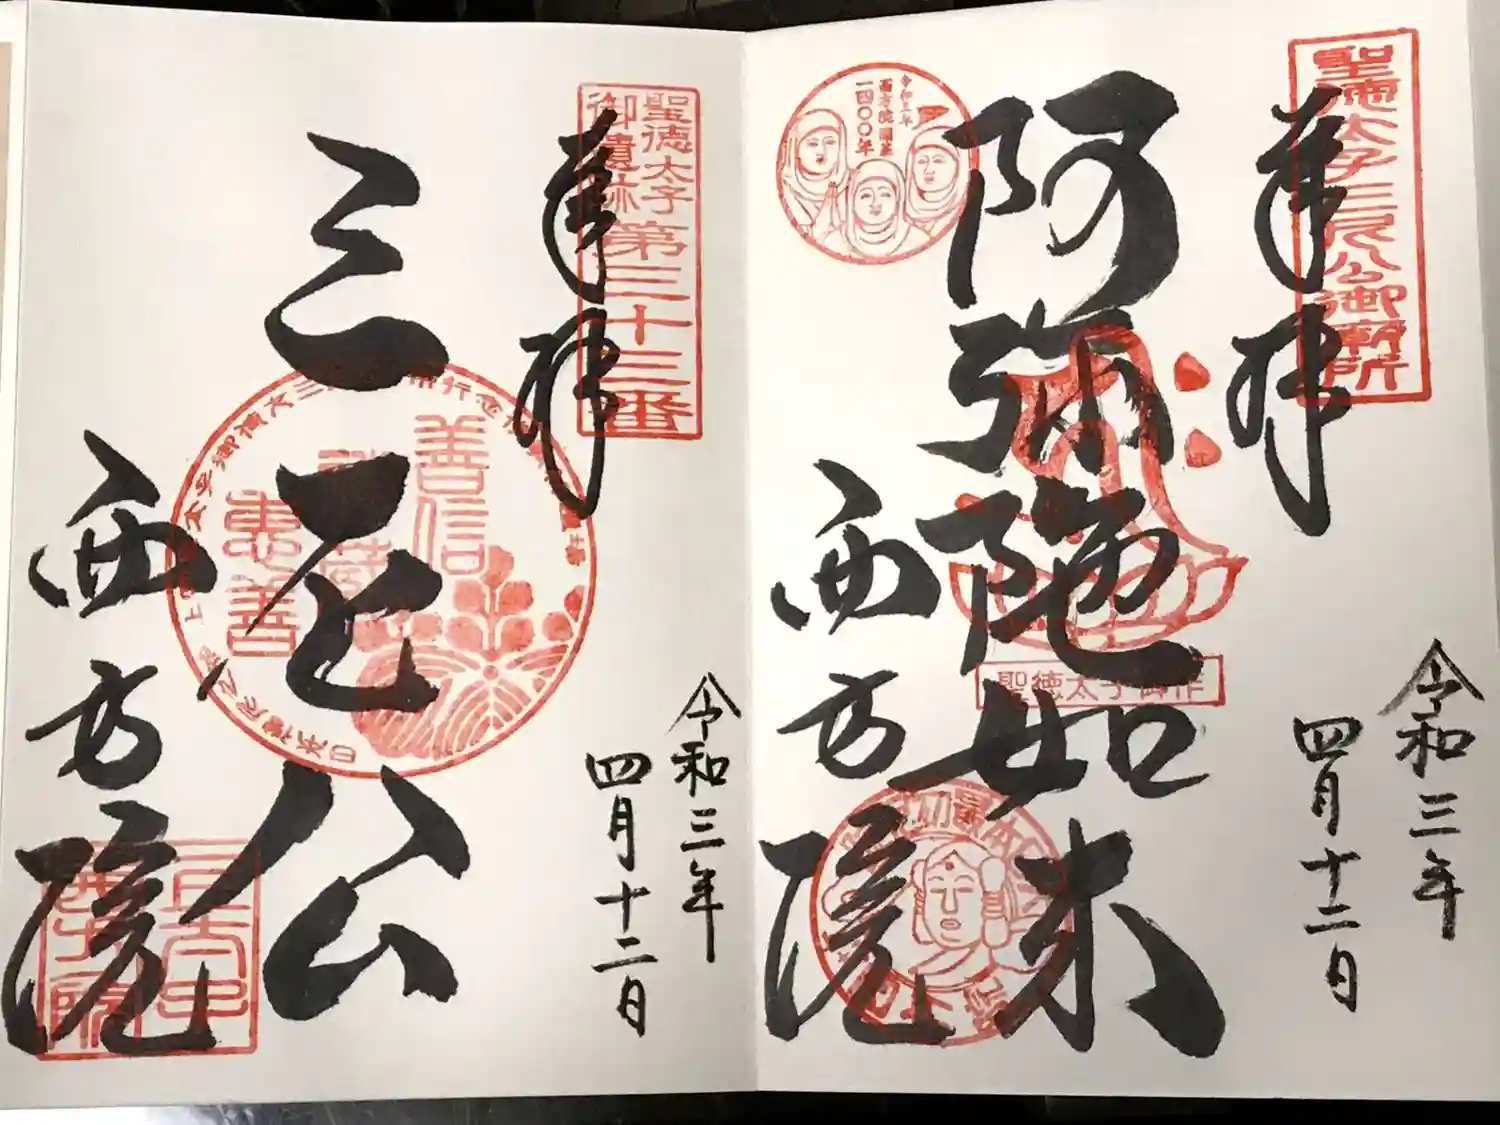 聖徳太子三尼公御廟所
奉拝
令和三年
四月十二日
阿弥陀如来
西方院
令和三年
西方院開基
一四〇〇年
聖徳太子御作
聖徳太子
御遺跡第三十三番
奉拝
令和三年
四月十二日
三尼公
西方院
善信
禅蔵
恵善